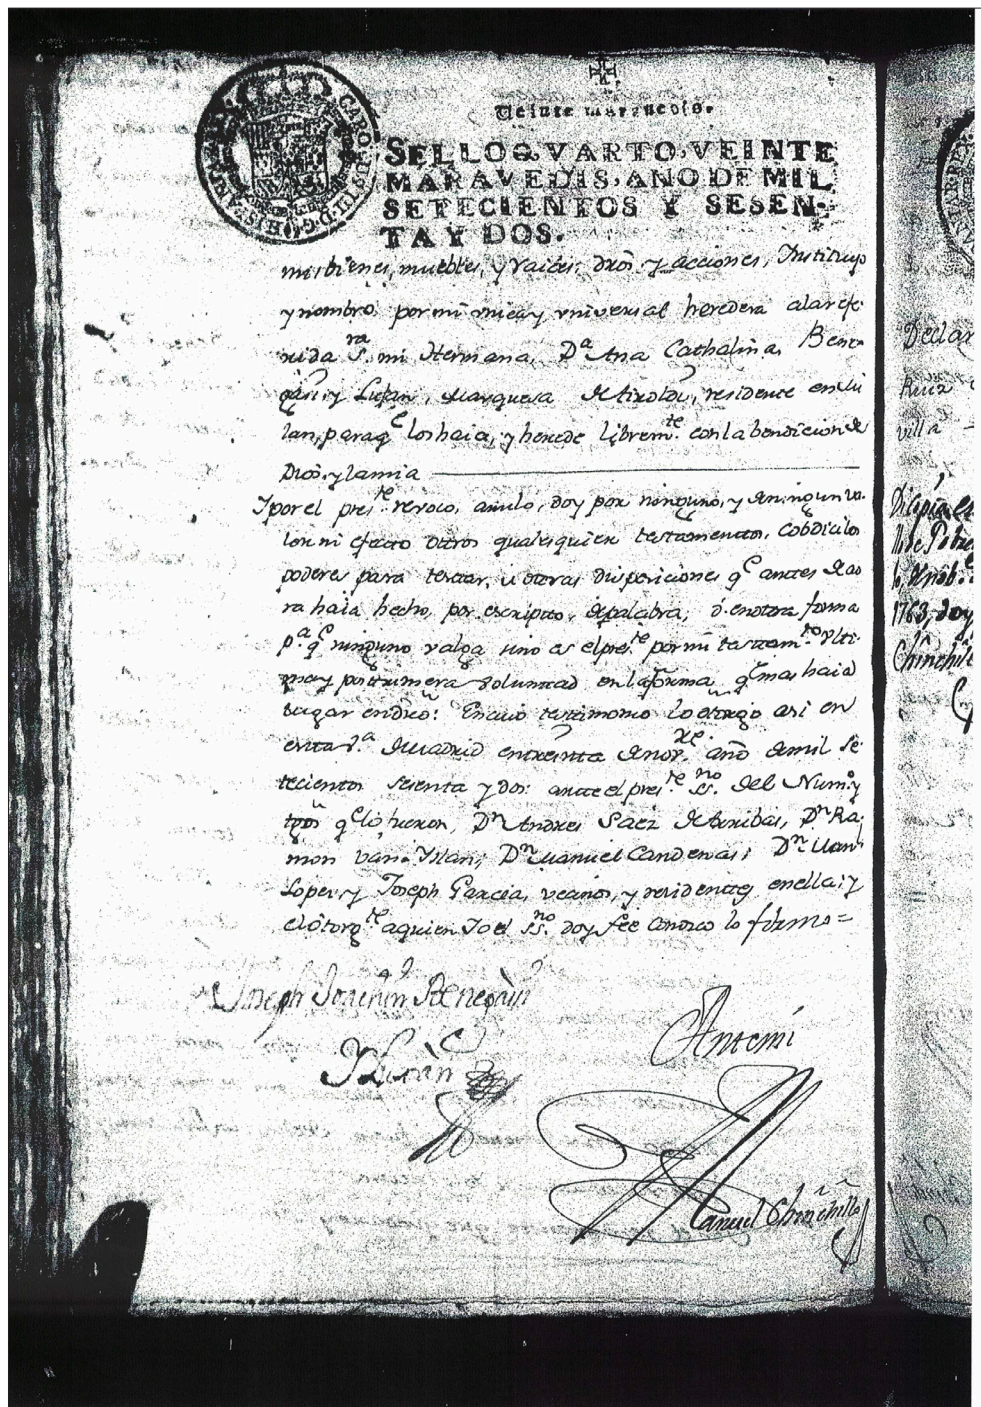 Veinte maravedis.
SELLO QVARTO, VEINTE
MARAVEDIS, AÑO DE MIL
SETECIENTOS Y SESEN-
TA Y DOS.
mis bienes, muebles, y raices, dros. y acciones, Instituyo
y nombro por mi unica y vniversal heredera a la refe-
rida Sra. mi Hermana, Da. Ana Cathalina, Bene-
gasi y Luján, Marquesa residente en Mi
lan, para qe. los haia, y herede libremte. con la bendicion de
Dios, y la mia
I por el preste. revoco, anulo, doy por ninguno, y de ningun va-
lor ni efecto otros qualesquier testamentos, cobdicilos
poderes para testar, u otras disposiciones qe. antes de ao
ra haia hecho, por escripto, de palabra, ó en otra forma
pa. qe. ninguno valga sino es el preste. por mi testamto. Vlti
ma y postrimera voluntad en la forma qe. mas haia
lugar en dro: En cuio testimonio lo otorgo asi en
esta Va. de Madrid en treinta de novre. año de mil se-
tecientos sesenta y dos: ante el preste. ssno. del Numo. y
tgos qe. lo fueron, Dn. Andres Saez de Arribas, Dn. Ra-
mon van Islan, Dn. Manuel Candenas; Dn. Juan
Lopez y Joseph Garcia, vecinos, y residentes en ella; y
el otorgte. a quien Io el ssno. doy fee conozco lo firmo=
Joseph Joachin Benegasi
y Luxàn
Antemi
Manuel Chinchilla
Declar
Ruiz
villa
Di copia en
llo de Pobre
1763, doy
Chinchill